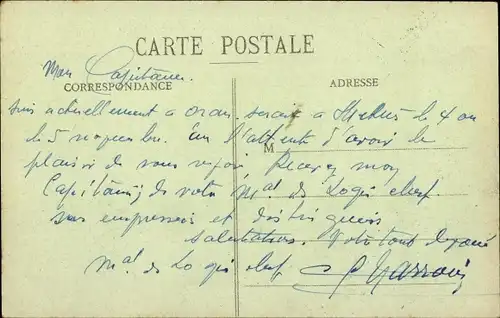 CARTE POSTALE
Mon Capitaine
CORRESPONDANCE
ADRESSE
suis actuellement a oran. serai a le 4 ou
le 5 novembre. En l'attente d'avoir le
M
plaisir de vous revoir, Recevez mon
Capitaine, de votre Mal des Logis chef
ses empressées et distinguées
salutations. Votre tout dévoué
Mal des Logis chef